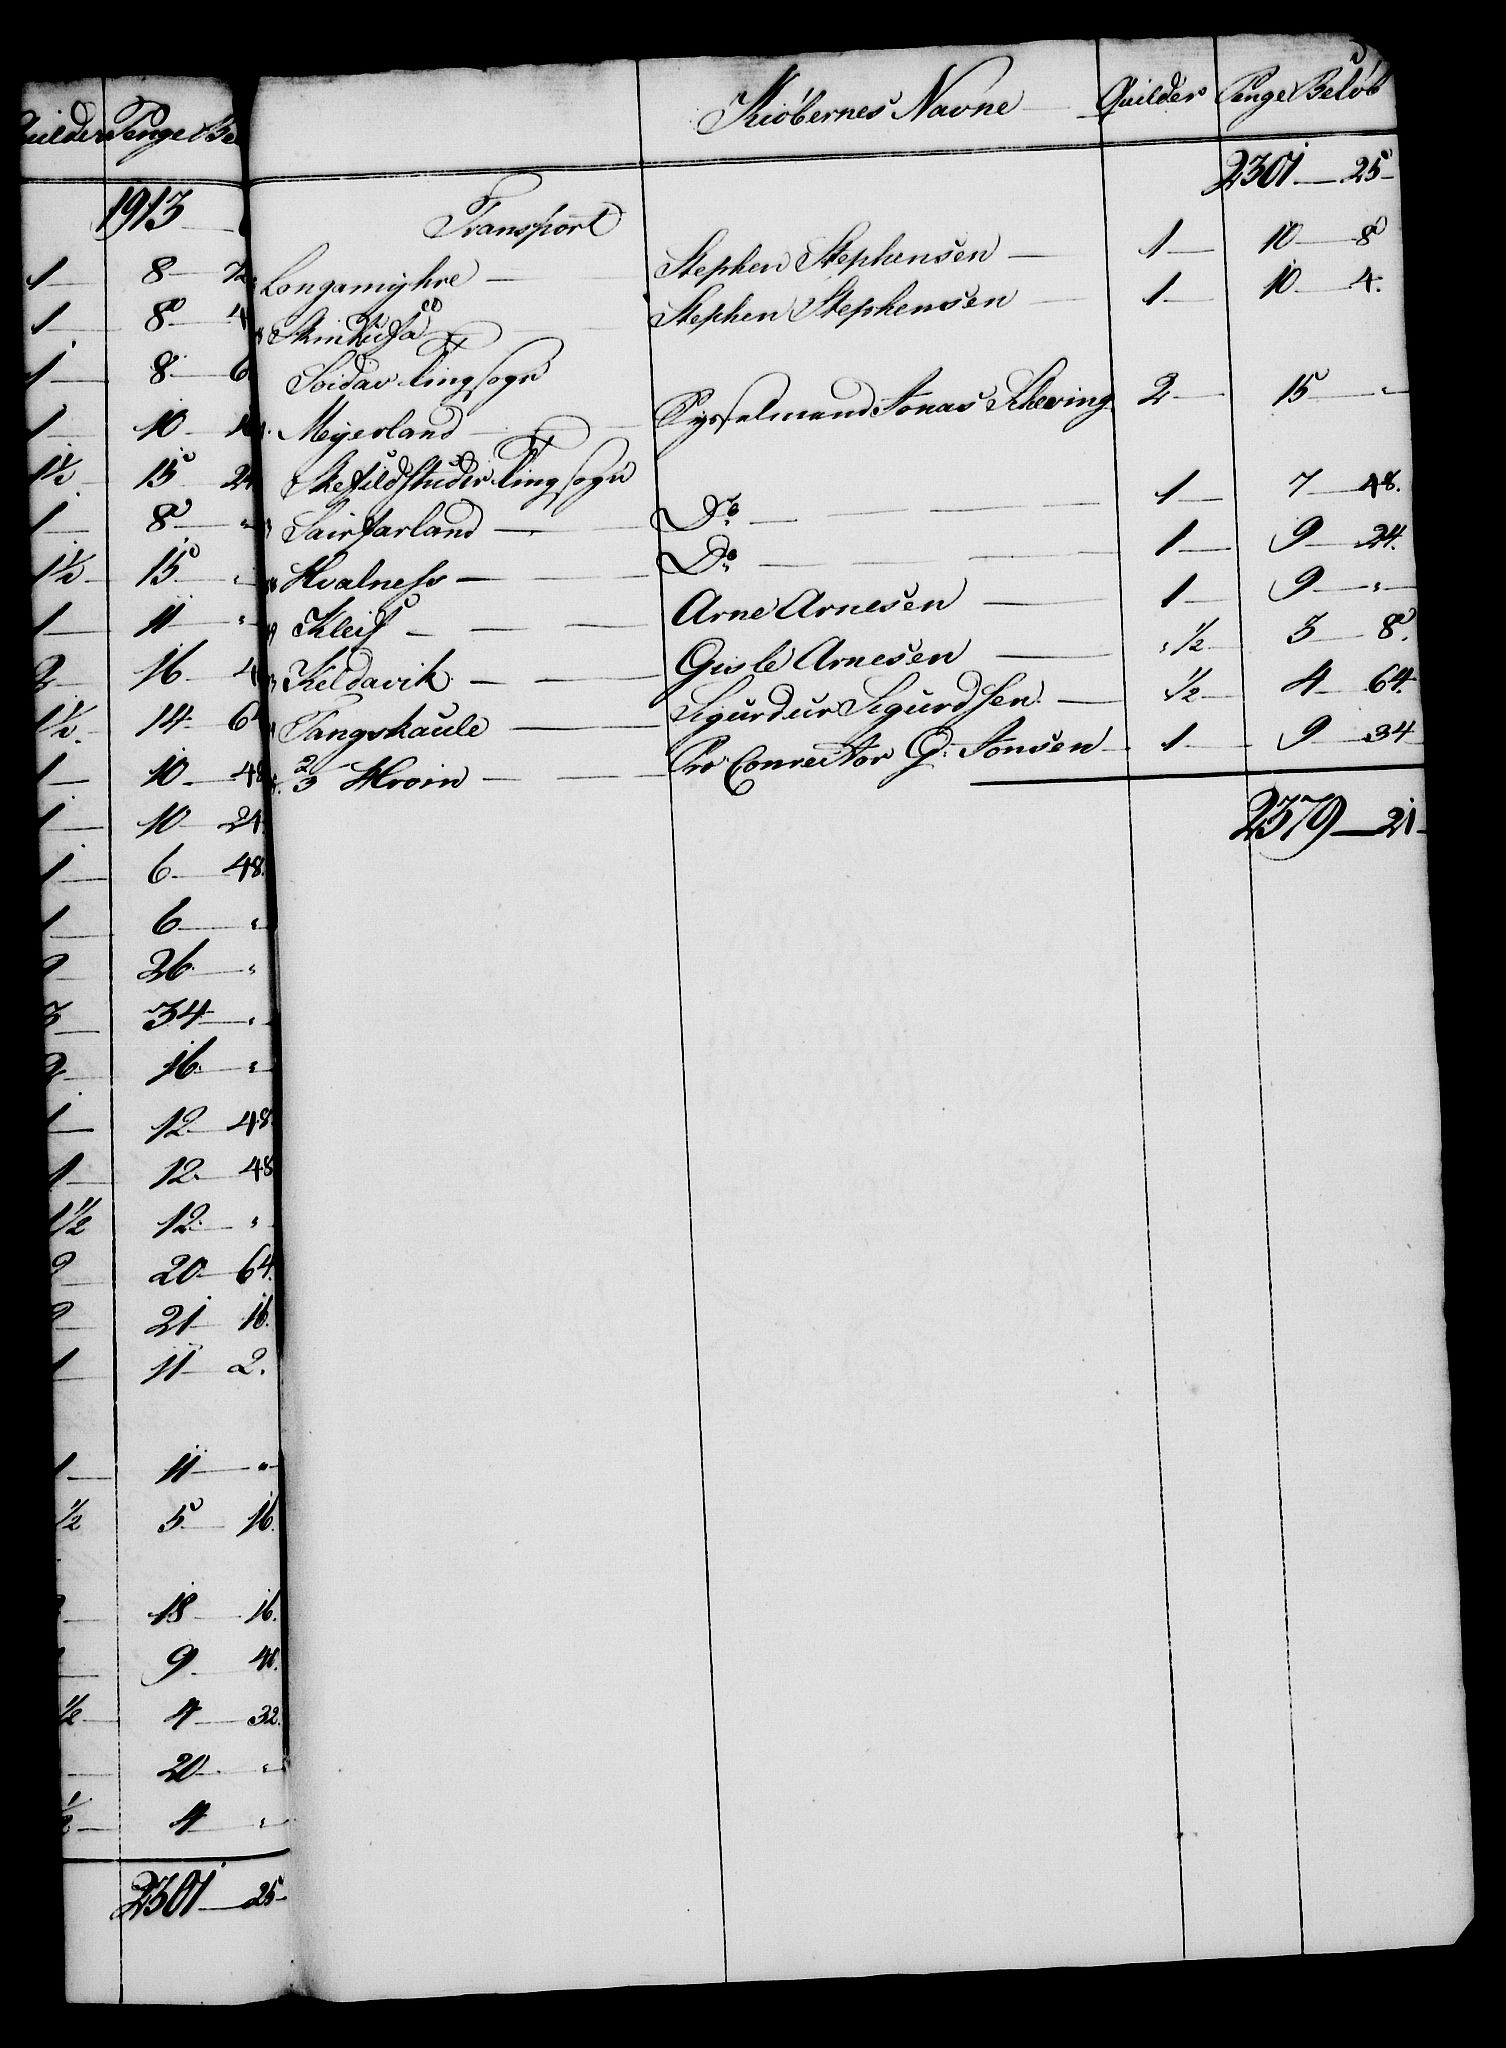 Kiöbernes Navne Quilder Penge Belöb
Transport 2301 — 25
Longamyhre — Stephen Stephensen — 1 — 10 — 8
Skinthufa — Stephen Stephensen — 1 — 10 — 4.
Soidav Ting sogn
Meyerland — Sysselmand Jonas Scheving 2 — 15 — "
Skefildstuder Ting sogn
Sairfarland — Do — 1 — 7 — 48.
Hvalness — Do — 1 — 9 — 24.
Kleif — Arne Arnesen — 1 — 9 — "
Keldavik — Gisle Arnesen — 1/2 — 3 — 8.
Tangskaule — Sigurdur Sigurdsen — 1/2 — 4 — 64.
2/3 Hroin — Pro Conrector G: Jonsen — 1 — 9 — 34
2379 — 21
Quilder Penge Be
1913
1 — 8 — 72
1 — 8 — 4
1 — 8 — 6
1 — 10 — 16
1 1/2 — 15 — 24
1 — 8 — "
1 1/2 — 15 — "
1 — 11 — "
2 — 16 — 4
1 1/2 — 14 — 6
1 — 10 — 48
1 — 10 — 24.
1 — 6 — 48.
1 — 6 — "
2 — 26 — "
3 — 34 — "
2 — 16 — "
1 — 12 — 48.
1 — 12 — 48
1 1/2 — 12 — "
2 — 20 — 64.
2 — 21 — 16.
1 — 11 — 2.
1 — 11 — "
1/2 — 5 — 16.
18 — 16.
9 — 48.
1/2 — 4 — 32.
20 — "
1/2 — 4 — "
2301 — 25